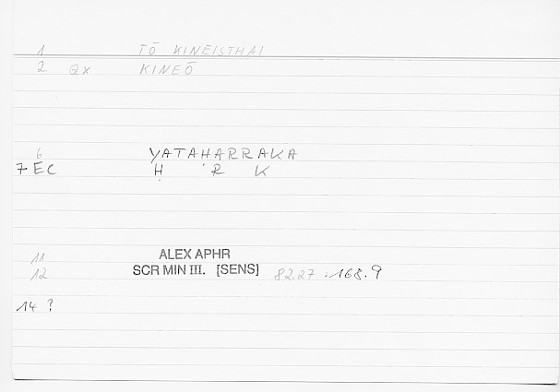 1 TŌ KINEISTHAI
2 Qx KINEŌ
6 YATAHARRAKA
7 EC Ḥ R K
11 ALEX APHR
12 SCR MIN III. [SENS] 82.27 .168.9
14 ?